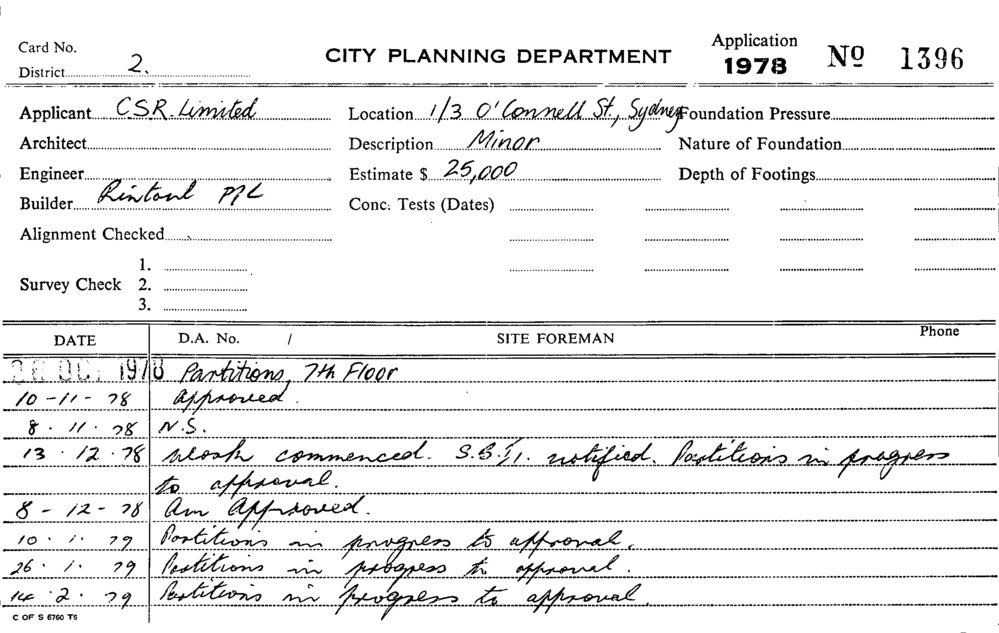 Card No.
District 2.
CITY PLANNING DEPARTMENT
Application 1978 No 1396
Applicant C.S.R. Limited
Location 1/3 O'Connell St., Sydney
Foundation Pressure
Architect
Description Minor
Nature of Foundation
Engineer
Estimate $ 25,000
Depth of Footings
Builder Rintoul P/L
Conc. Tests (Dates)
Alignment Checked
Survey Check 1.
2.
3.
DATE D.A. No. / SITE FOREMAN Phone
OCT 1978 Partitions, 7th Floor
10-11-78 Approved.
8.11.78 N.S.
13.12.78 Work commenced. notified. Partitions in progress
to approval.
8-12-78 Am Approved.
10.1.79 Partitions in progress to approval.
26.1.79 Partitions in progress to approval.
14.2.79 Partitions in progress to approval.
C OF S 6760 T6